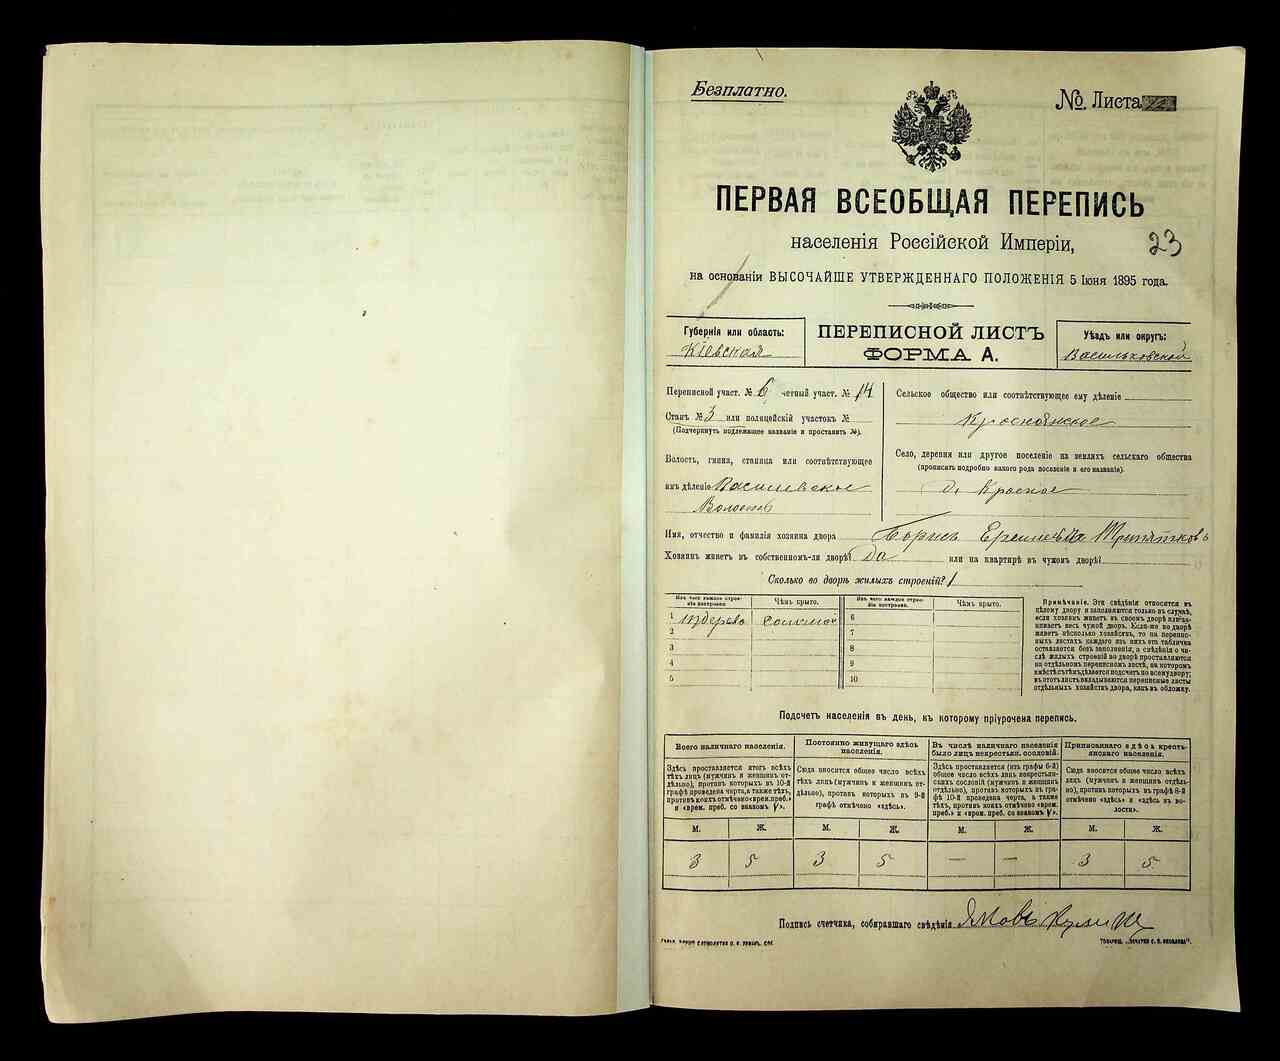 Безплатно.
№ Листа
ПЕРВАЯ ВСЕОБЩАЯ ПЕРЕПИСЬ
населенія Россійской Имперіи,
23
на основаніи ВЫСОЧАЙШЕ УТВЕРЖДЕННАГО ПОЛОЖЕНІЯ 5 Іюня 1895 года.
Губернія или область:
Кіевская
ПЕРЕПИСНОЙ ЛИСТЪ
ФОРМА А.
Уѣздъ или округъ:
Васильковской
Переписной участ. № 6 четный участ. № 14
Станъ № 3 или полицейскій участокъ №
(Подчеркнуть подлежащее названіе и проставить №).
Волость, гмина, станица или соотвѣтствующее
имъ дѣленіе
Сельское общество или соотвѣтствующее ему дѣленіе
Краснянское
Село, деревня или другое поселеніе на земляхъ сельскаго общества
(прописать подробно какого рода поселеніе и его названіе).
д. Красное
Имя, отчество и фамилія хозяина двора Борисъ
Хозяинъ живетъ въ собственномъ-ли дворѣ? Да или на квартирѣ въ чужомъ дворѣ?
Сколько во дворѣ жилыхъ строеній? 1
Изъ чего каждое строе-
ніе построено.
Чѣмъ крыто.
1 Изъ дерева Соломой
2
3
4
5
Изъ чего каждое строе-
ніе построено.
Чѣмъ крыто.
6
7
8
9
10
Примѣчаніе. Эти свѣдѣнія относятся къ
цѣлому двору и заполняются только въ случаѣ,
если хозяинъ живетъ въ своемъ дворѣ или за-
нимаетъ весь чужой дворъ. Если-же во дворѣ
живетъ нѣсколько хозяйствъ, то на перепис-
ныхъ листахъ каждаго изъ нихъ эта табличка
оставляется безъ заполненія, а свѣдѣнія о чи-
слѣ жилыхъ строеній во дворѣ проставляются
на отдѣльномъ переписномъ листѣ, на которомъ
вмѣстѣ съ тѣмъ дѣлается подсчетъ по всему двору;
въ этотъ листъ вкладываются переписные листы
отдѣльныхъ хозяйствъ двора, какъ въ обложку.
Подсчетъ населенія въ день, къ которому пріурочена перепись.
Всего наличнаго населенія.
Здѣсь проставляется итогъ всѣхъ
тѣхъ лицъ (мужчинъ и женщинъ от-
дѣльно), противъ которыхъ въ 10-й
графѣ проведена черта, а также тѣхъ,
противъ коихъ отмѣчено «врем. преб.»
и «врем. преб. со знакомъ V».
Постоянно живущаго здѣсь
населенія.
Сюда вносится общее число всѣхъ
тѣхъ лицъ (мужчинъ и женщинъ от-
дѣльно), противъ которыхъ въ 9-й
графѣ отмѣчено «здѣсь».
Въ числѣ наличнаго населенія
было лицъ некрестьян. сословій.
Здѣсь проставляется (изъ графы 6-й)
общее число всѣхъ лицъ некрестьян-
скихъ сословій (мужчинъ и женщинъ
отдѣльно), противъ которыхъ въ гра-
фѣ 10-й проведена черта, а также
тѣхъ, противъ коихъ отмѣчено «врем.
преб.» и «врем. преб. со знакомъ V».
Приписаннаго здѣсь кресть-
янскаго населенія.
Сюда вносится общее число всѣхъ
лицъ (мужчинъ и женщинъ отдѣль-
но), противъ которыхъ въ графѣ 8-й
отмѣчено «здѣсь» и «здѣсь въ во-
лости».
М. Ж. М. Ж. М. Ж. М. Ж.
3 5 3 5 — — 3 5
Подпись счетчика, собиравшаго свѣдѣнія Яковъ